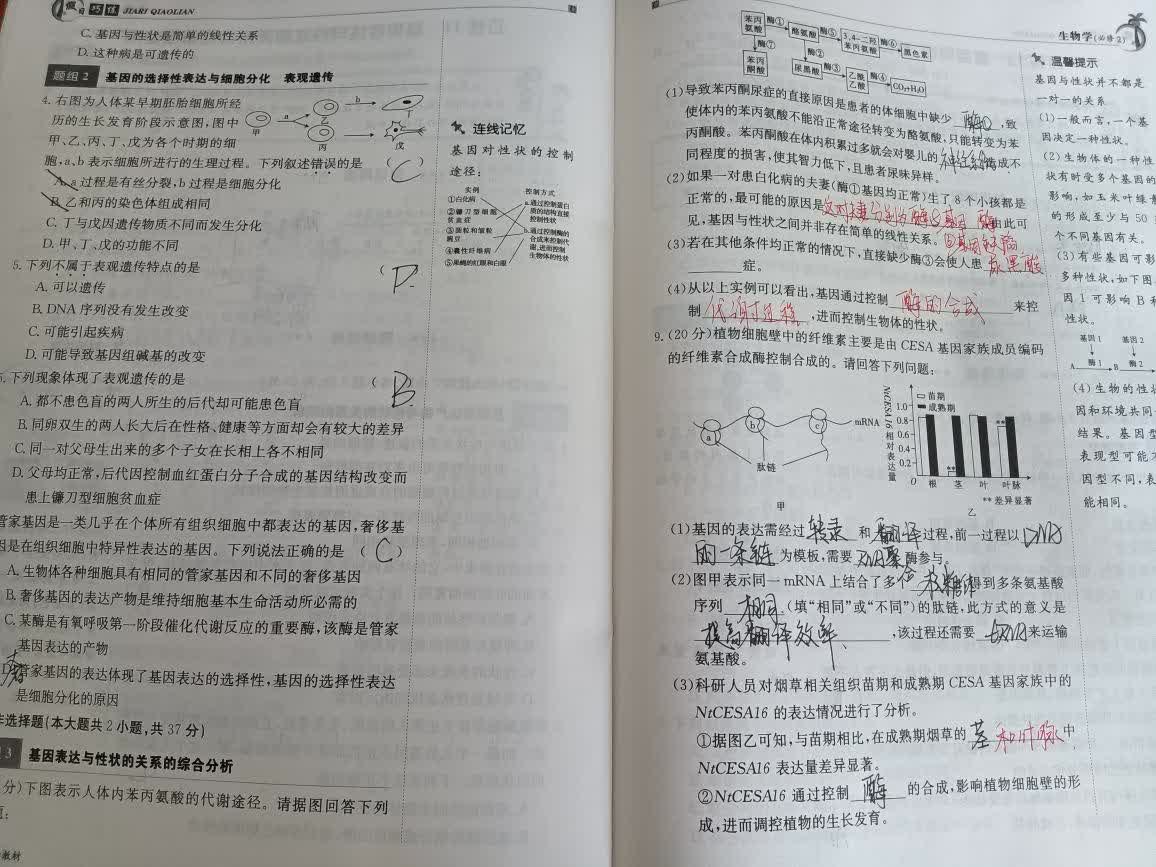 假日 巧练 JIARI QIAOLIAN
C. 基因与性状是简单的线性关系
D. 这种病是可遗传的
题组2 基因的选择性表达与细胞分化 表观遗传
4. 右图为人体某早期胚胎细胞所经
历的生长发育阶段示意图,图中
甲、乙、丙、丁、戊为各个时期的细
胞,a、b 表示细胞所进行的生理过程。下列叙述错误的是 ( C )
A. a 过程是有丝分裂,b 过程是细胞分化
B. 乙和丙的染色体组成相同
C. 丁与戊因遗传物质不同而发生分化
D. 甲、丁、戊的功能不同
甲 a 乙 丙 b 丁 戊
5. 下列不属于表观遗传特点的是 ( D
A. 可以遗传
B. DNA 序列没有发生改变
C. 可能引起疾病
D. 可能导致基因组碱基的改变
6. 下列现象体现了表观遗传的是 ( B
A. 都不患色盲的两人所生的后代却可能患色盲
B. 同卵双生的两人长大后在性格、健康等方面却会有较大的差异
C. 同一对父母生出来的多个子女在长相上各不相同
D. 父母均正常,后代因控制血红蛋白分子合成的基因结构改变而
患上镰刀型细胞贫血症
管家基因是一类几乎在个体所有组织细胞中都表达的基因,奢侈基
因是在组织细胞中特异性表达的基因。下列说法正确的是 ( C )
A. 生物体各种细胞具有相同的管家基因和不同的奢侈基因
B. 奢侈基因的表达产物是维持细胞基本生命活动所必需的
C. 某酶是有氧呼吸第一阶段催化代谢反应的重要酶,该酶是管家
基因表达的产物
D. 管家基因的表达体现了基因表达的选择性,基因的选择性表达
是细胞分化的原因
非选择题(本大题共 2 小题,共 37 分)
3 基因表达与性状的关系的综合分析
分)下图表示人体内苯丙氨酸的代谢途径。请据图回答下列
题:
教材
连线记忆
基因对性状的控制
途径:
实例 控制方式
①白化病
②镰刀型细胞
贫血症
③圆粒和皱粒
豌豆
④囊性纤维病
⑤果蝇的红眼和白眼
a. 通过控制蛋白
质的结构直接
控制性状
b. 通过控制酶的
合成来控制代
谢,进而控制
生物体的性状
生物学(必修2)
苯丙氨酸 酶① 酪氨酸 酶⑤ 3,4-二羟苯丙氨酸 酶⑥ 黑色素
酶⑦ 酶②
苯丙酮酸 尿黑酸 酶③ 乙酰乙酸 酶④ CO₂+H₂O
(1)导致苯丙酮尿症的直接原因是患者的体细胞中缺少 酶① ,致
使体内的苯丙氨酸不能沿正常途径转变为酪氨酸,只能转变为苯
丙酮酸。苯丙酮酸在体内积累过多就会对婴儿的 神经系统 造成不
同程度的损害,使其智力低下,且患者尿味异样。
(2)如果一对患白化病的夫妻(酶①基因均正常)生了 8 个小孩都是
正常的,最可能的原因是 由此可
见,基因与性状之间并非存在简单的线性关系。
(3)若在其他条件均正常的情况下,直接缺少酶③会使人患 尿黑酸
症。
(4)从以上实例可以看出,基因通过控制 酶的合成 来控
制 代谢过程 ,进而控制生物体的性状。
9. (20 分)植物细胞壁中的纤维素主要是由 CESA 基因家族成员编码
的纤维素合成酶控制合成的。请回答下列问题:
a b c mRNA
肽链
甲
NtCESA16 相对表达量
苗期
成熟期
1.0
0.8
0.6
0.4
0.2
O 根 茎 叶 叶脉
** **
** 差异显著
乙
(1)基因的表达需经过 转录 和 翻译 过程,前一过程以 DNA
的一条链 为模板,需要 RNA聚合 酶参与。
(2)图甲表示同一 mRNA 上结合了多个 核糖体 得到多条氨基酸
序列 相同 (填“相同”或“不同”)的肽链,此方式的意义是
提高翻译效率 ,该过程还需要 tRNA 来运输
氨基酸。
(3)科研人员对烟草相关组织苗期和成熟期 CESA 基因家族中的
NtCESA16 的表达情况进行了分析。
①据图乙可知,与苗期相比,在成熟期烟草的 茎 和叶脉 中
NtCESA16 表达量差异显著。
②NtCESA16 通过控制 酶 的合成,影响植物细胞壁的形
成,进而调控植物的生长发育。
温馨提示
基因与性状并不都是
一对一的关系
(1)一般而言,一个基
因决定一种性状。
(2)生物体的一种性
状有时受多个基因的
影响,如玉米叶绿
的形成至少与 50
个不同基因有关。
(3)有些基因可影
多种性状,如下图
因 1 可影响 B 和
性状。
基因1 基因2
酶1 酶2
A B
(4)生物的性状
因和环境共同
结果。基因型
表现型可能不
因型不同,表
能相同。